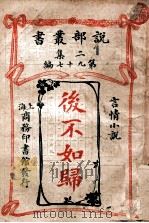 說部叢書
二集
第九十七編
言情小說
後不如歸
上海
商務印書館發行